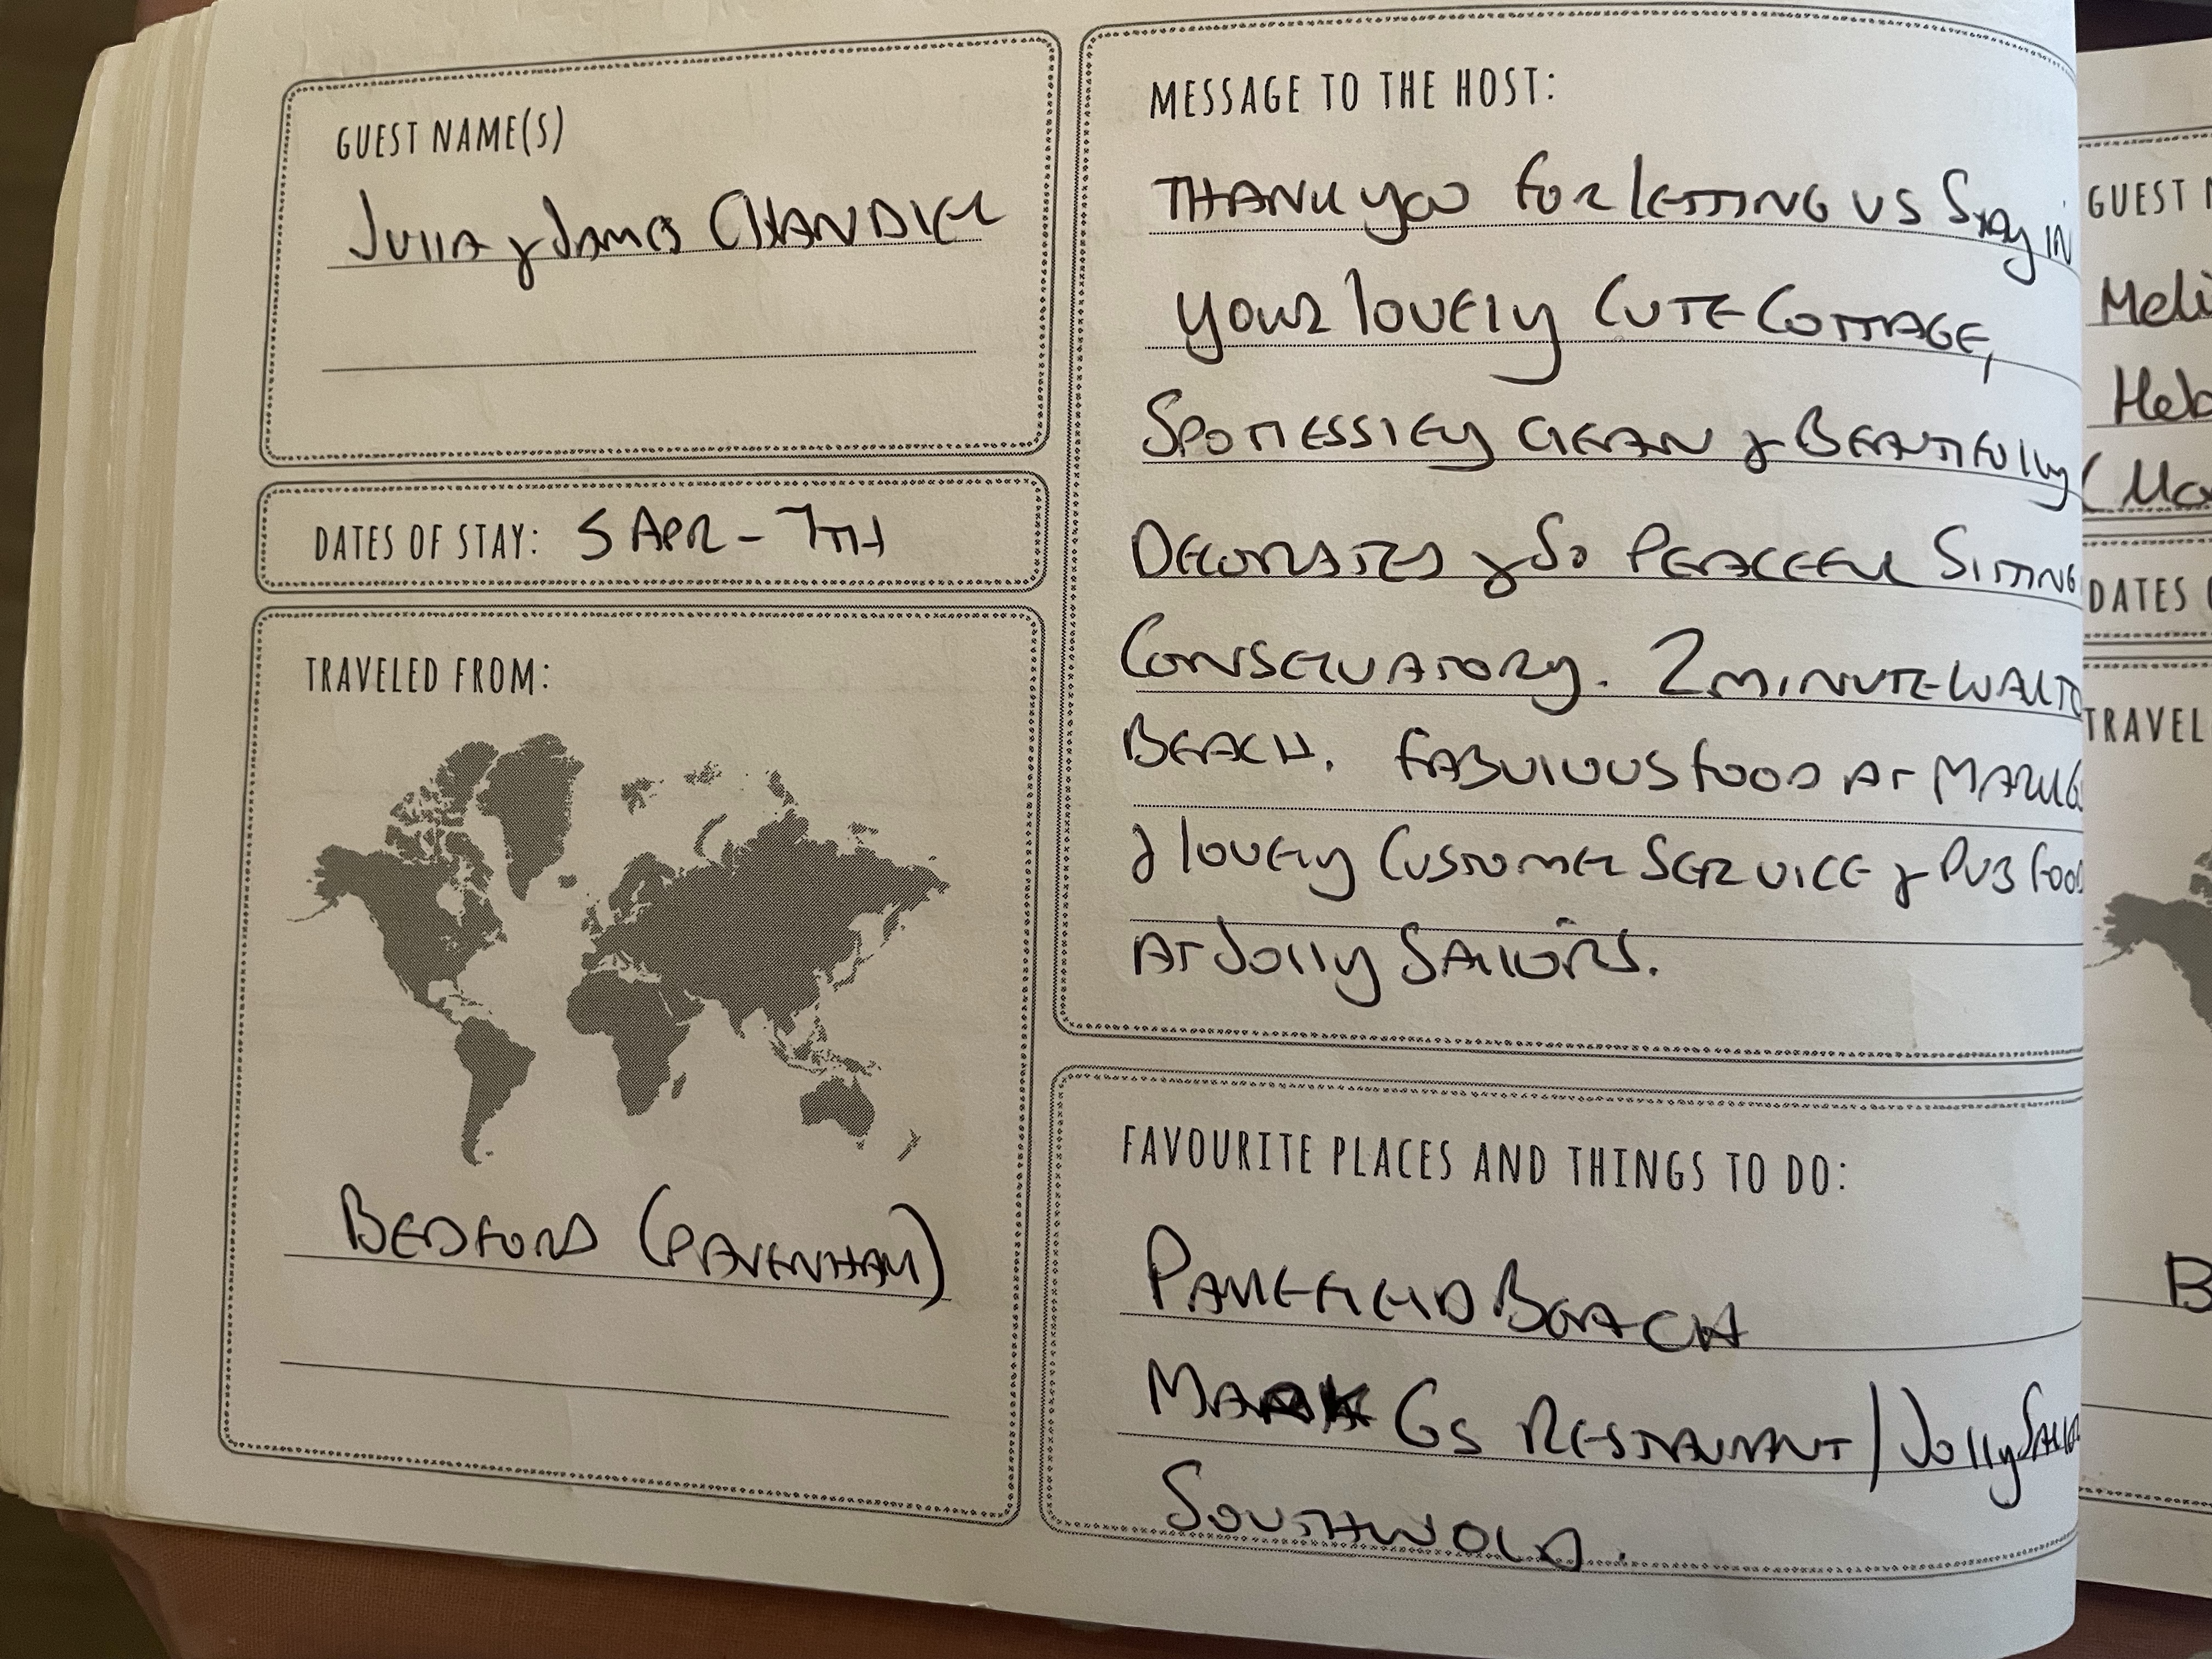 GUEST NAME(S)
Julia & James CHANDLER
DATES OF STAY: 5 APR - 7TH
TRAVELED FROM:
BEDFORD (PAVENHAM)
MESSAGE TO THE HOST:
THANK you FOR LETTING US Stay IN
your lovely CUTE COTTAGE,
SPOTLESSLEy CLEAN & BEAUTIFULLy
DECORATED & So PEACEFUL SITTING
CONSERVATORy. 2 MINUTE WALK TO
BEACH. FABULOUS FOOD AT MARK G
& lovely CUSTOMER SERVICE & PUB FOOD
AT Jolly SAILORS.
FAVOURITE PLACES AND THINGS TO DO:
PAKEFIELD BEACH
MARK Gs RESTAURANT / Jolly SAILO
SOUTHWOLD.
GUEST N
Meli
Heb
DATES
TRAVEL
B